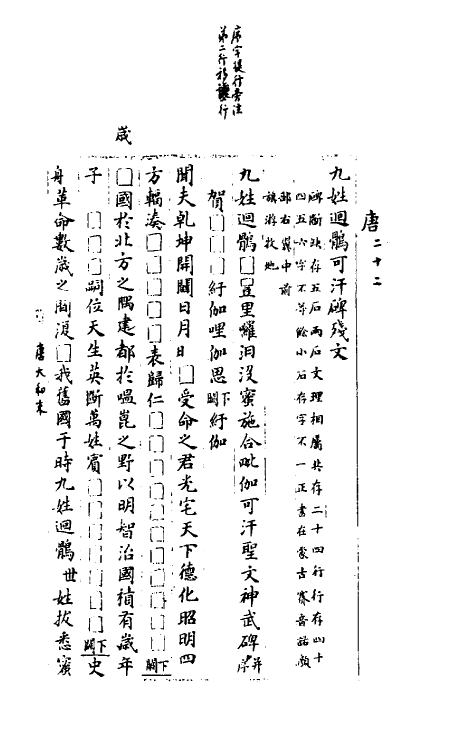 序字提行旁注
第二行移讓行
唐二十二
九姓迴鶻可汗碑殘文
碑斷缺存五石兩石文理相屬共存二十四行行存四十
四五六字不等餘小石存字不一正書在蒙古賽音諾顏
部右翼中前
旗游牧地
九姓迴鶻□豆里囉汨沒蜜施合毗伽可汗聖文神武碑并序
賀□□□紆伽哩伽思下闕紆伽
聞夫乾坤開闢日月□受命之君光宅天下德化昭明四
方輻湊□□□□表歸仁□□□□□□□□□下闕
歲
□國於北方之隅建都於嗢崑之野以明智治國積有歲年
子□□□嗣位天生英斷萬姓賓□□□□□□下闕史
那革命數歲之間復□我舊國于時九姓迴鶻卌姓拔悉蜜
唐大和末